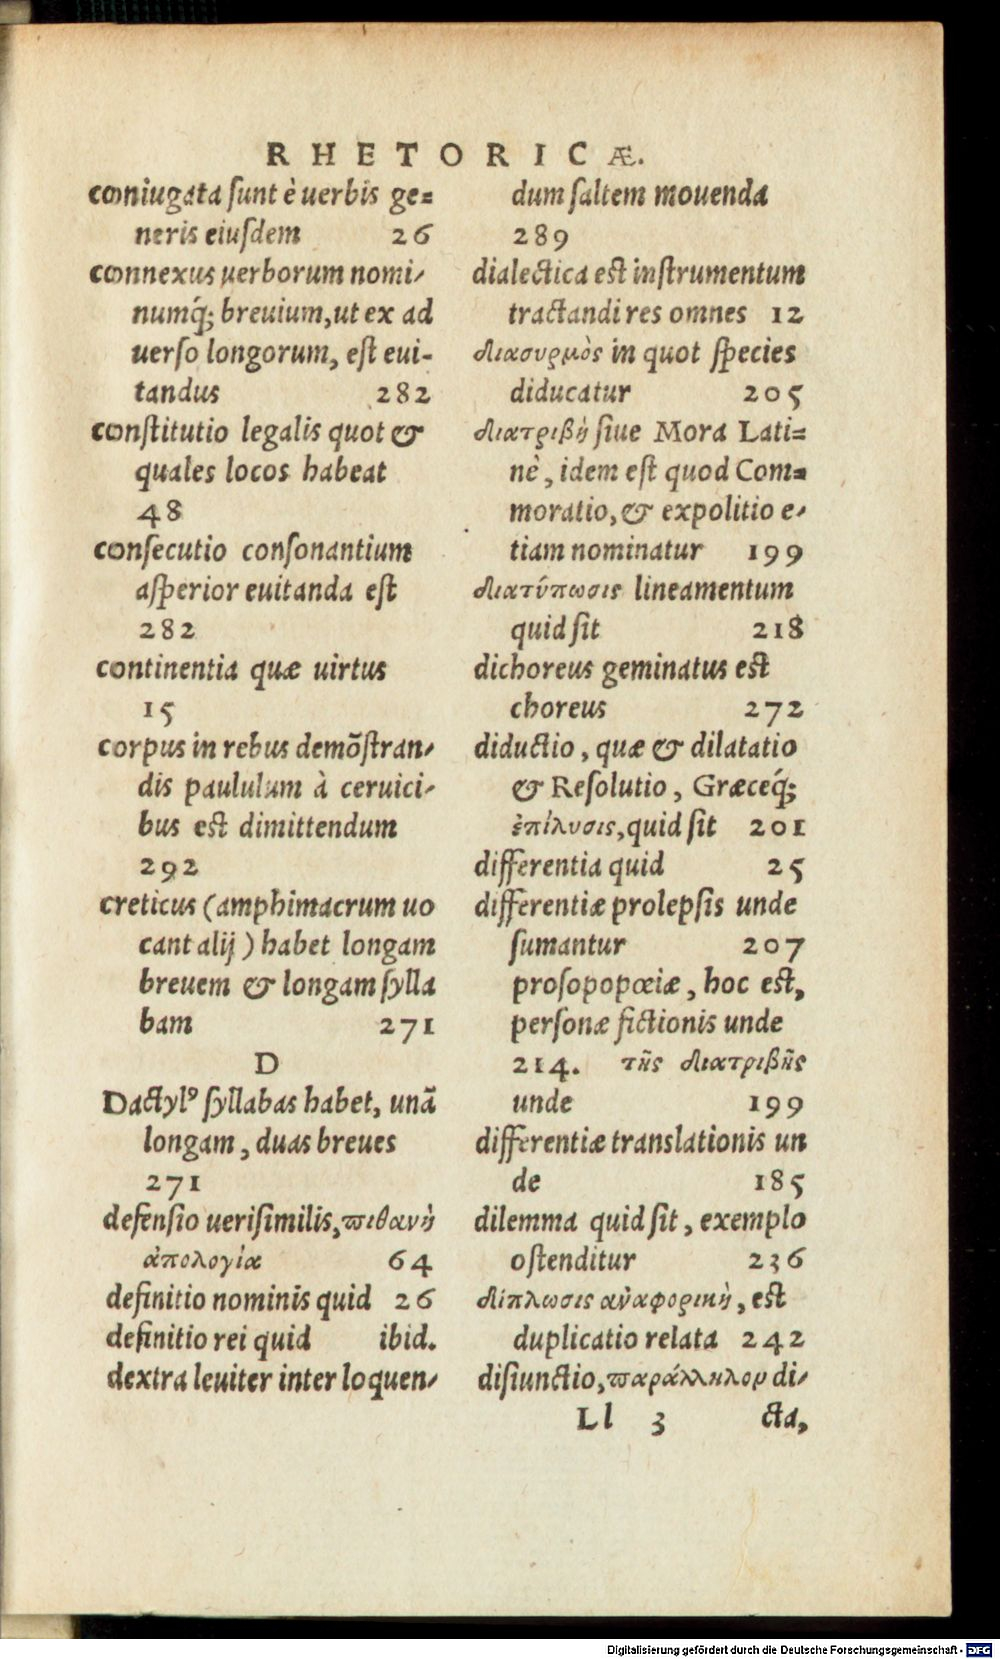 RHETORICÆ.
coniugata ſunt è uerbis ge=
neris eiuſdem 26
connexus uerborum nomi-
numq́; breuium, ut ex ad
uerſo longorum, eſt eui-
tandus 282
conſtitutio legalis quot &
quales locos habeat
48
conſecutio conſonantium
aſperior euitanda eſt
282
continentia quæ uirtus
15
corpus in rebus demōſtran-
dis paululum à ceruici-
bus eſt dimittendum
292
creticus (amphimacrum uo
cant alij) habet longam
breuem & longam ſylla
bam 271
D
Dactylꝰ ſyllabas habet, unā
longam, duas breues
271
defenſio ueriſimilis, πιθανὴ
ἀπολογία 64
definitio nominis quid 26
definitio rei quid ibid.
dextra leuiter inter loquen-
dum ſaltem mouenda
289
dialectica eſt inſtrumentum
tractandi res omnes 12
διασυρμὸς in quot ſpecies
diducatur 205
διατριβὴ ſiue Mora Lati=
nè, idem eſt quod Com=
moratio, & expolitio e-
tiam nominatur 199
διατύπωσις lineamentum
quid ſit 218
dichoreus geminatus eſt
choreus 272
diductio, quæ & dilatatio
& Reſolutio, Græceq́;
ἐπίλυσις, quid ſit 201
differentia quid 25
differentiæ prolepſis unde
ſumantur 207
proſopopœiæ, hoc eſt,
perſonæ fictionis unde
214. τῆς διατριβῆς
unde 199
differentiæ translationis un
de 185
dilemma quid ſit, exemplo
oſtenditur 236
δίπλωσις ἀναφορικὴ, eſt
duplicatio relata 242
diſiunctio, παράλληλον di-
Ll 3 cta,
Digitalisierung gefördert durch die Deutsche Forschungsgemeinschaft - DFG